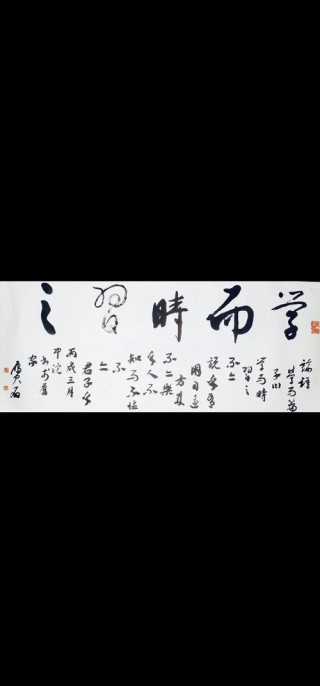 学而時習之
論語
學而篇
子曰
学而時
習之
不亦
説乎有
朋自遠
方來
不亦樂
乎人不
知而不愠
不
亦
君子乎
丙戌三月
中浣